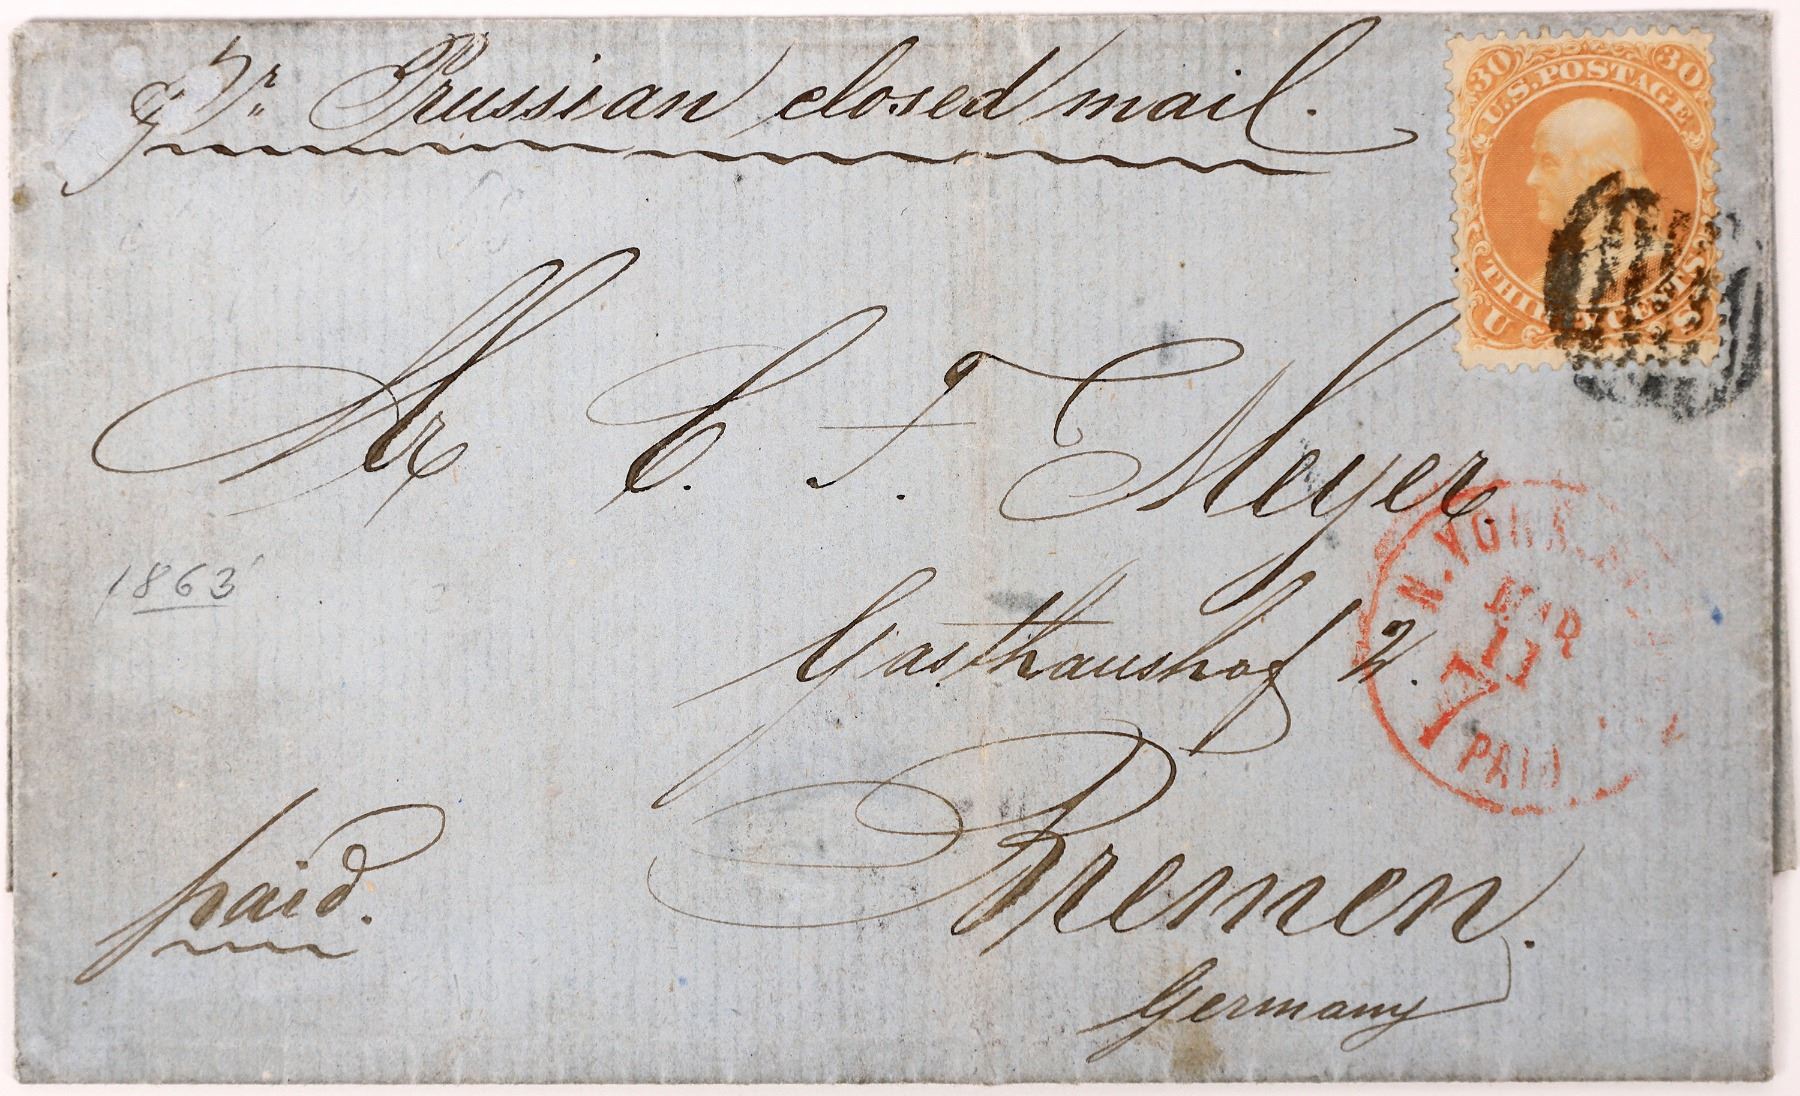 pr. Prussian closed mail.
30 30
U.S. POSTAGE
THIRTY CENTS
U S
Mr C. F. Meyer.
N. YORK
MAR
7
PAID
1863
Gasthaushof 2.
paid.
Bremen.
Germany